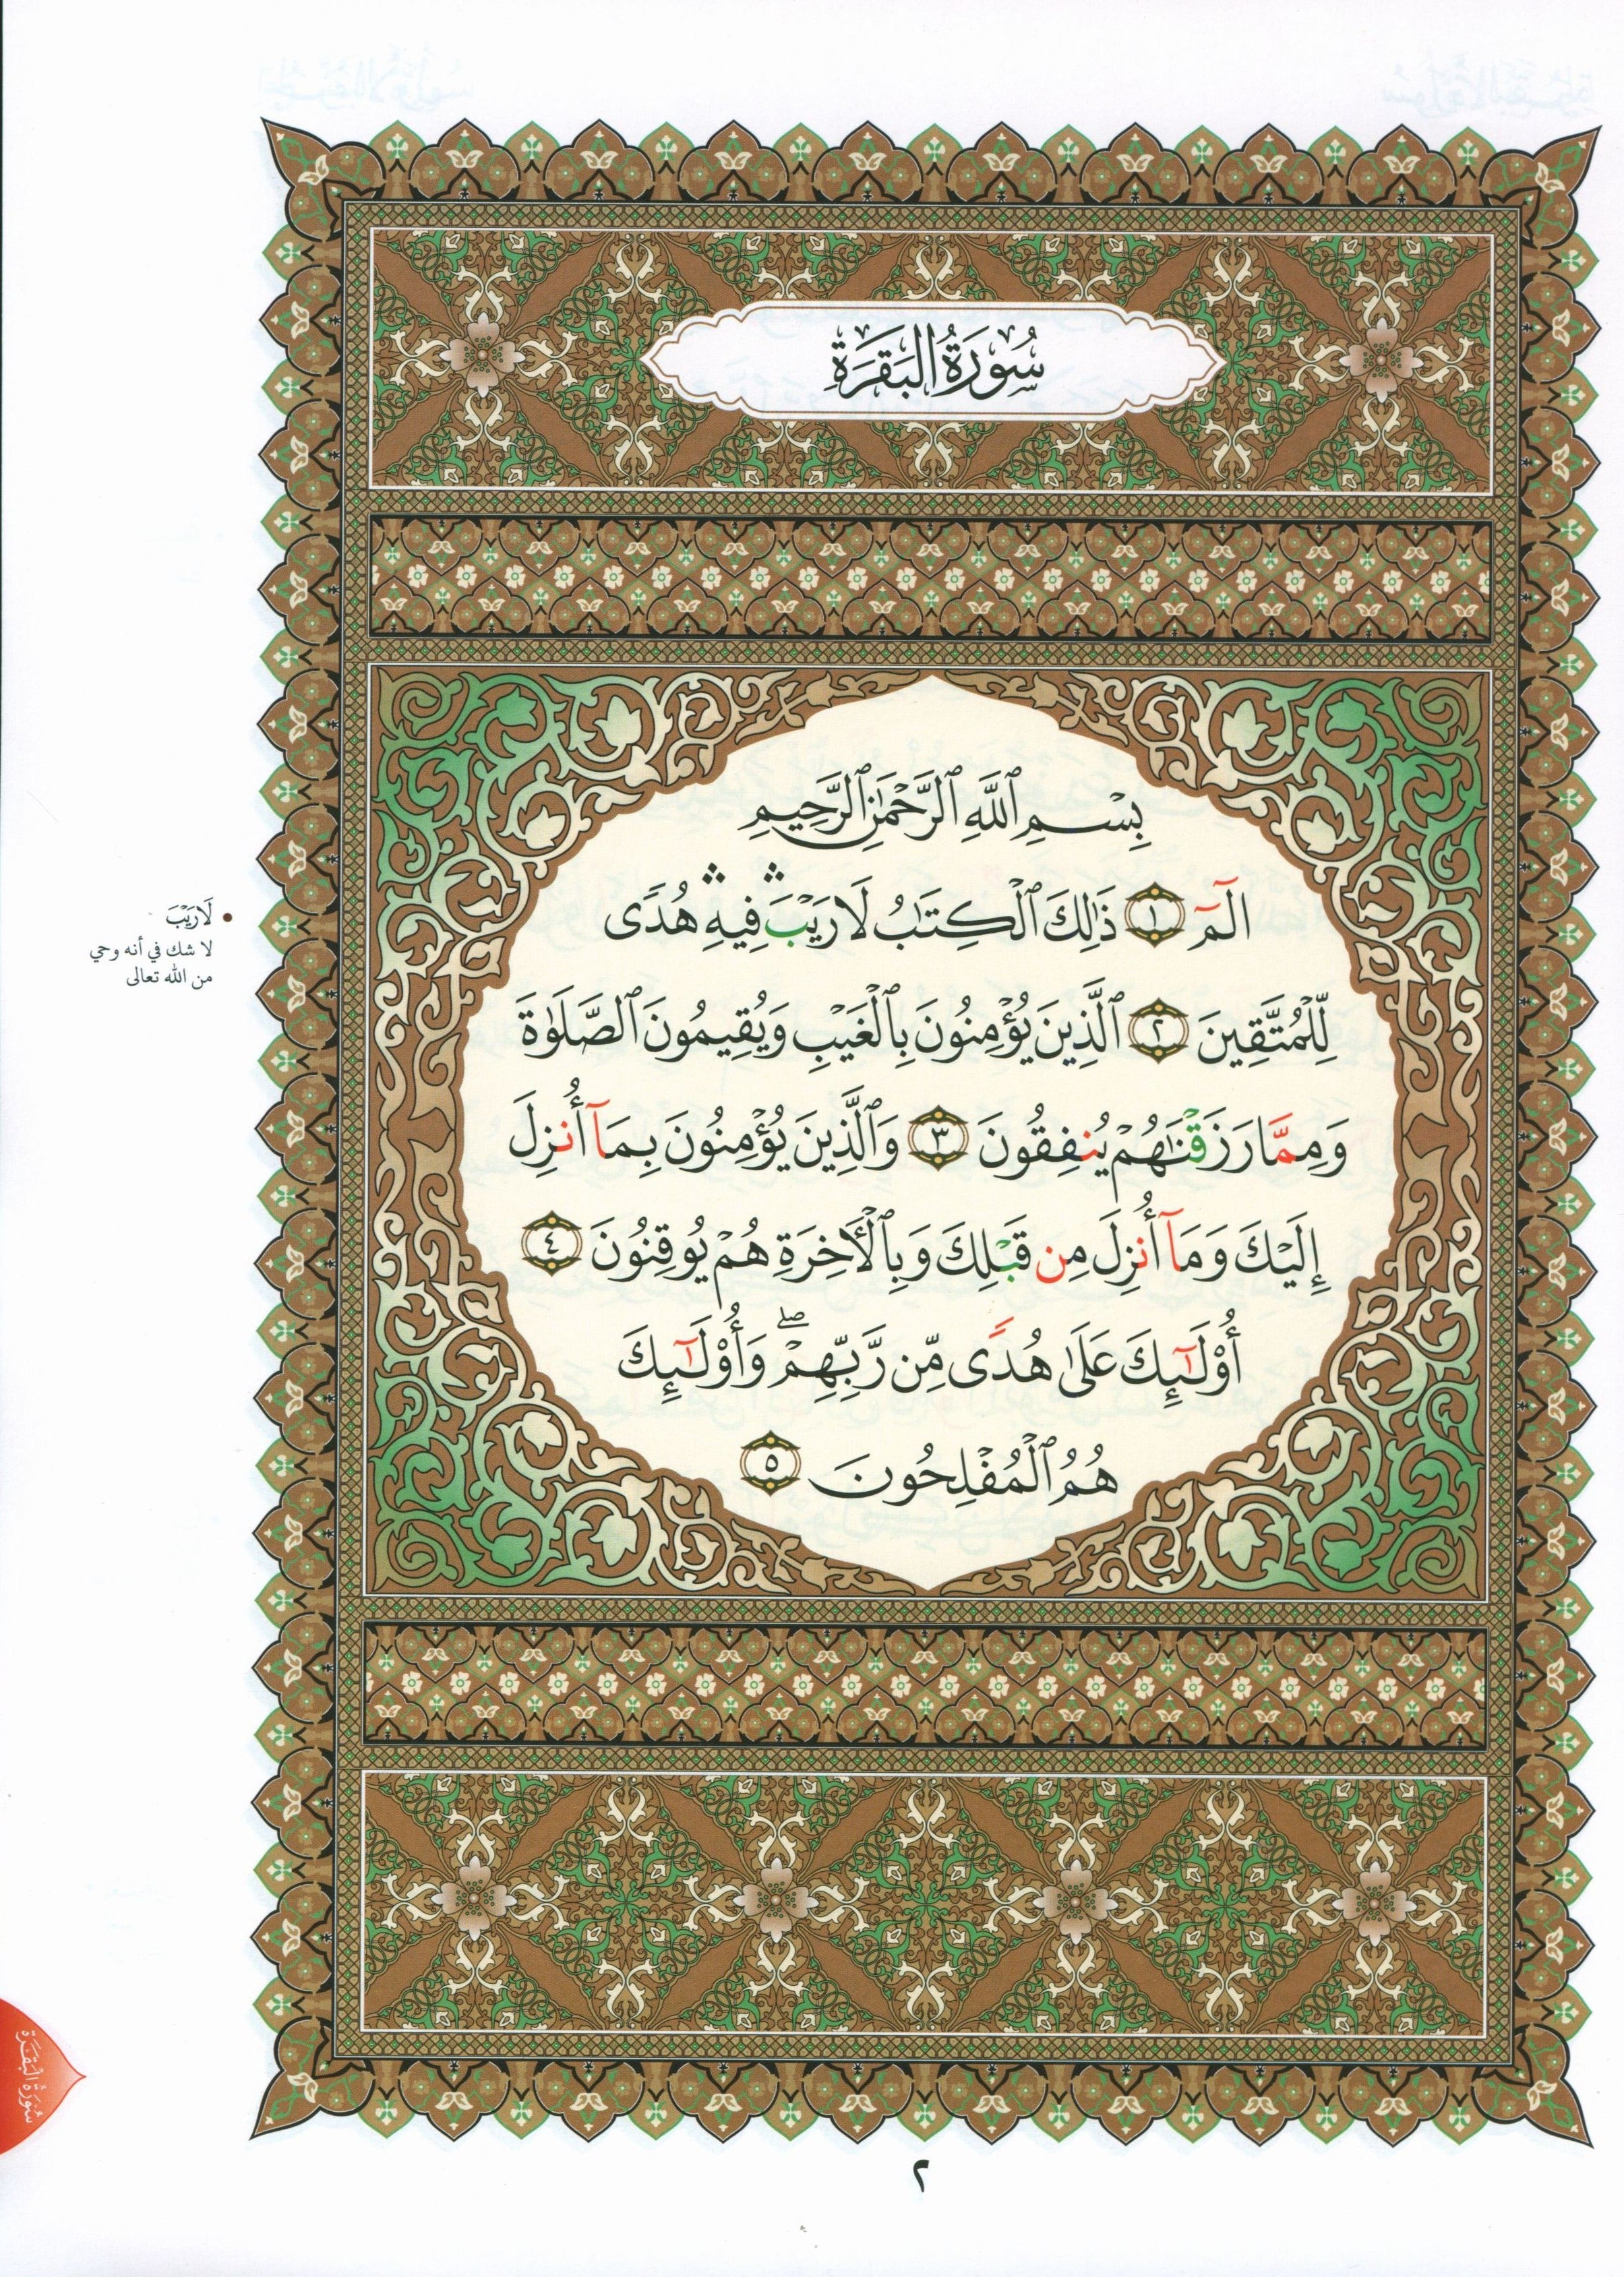 سُورَةُ الْبَقَرَةِ
بِسْمِ ٱللَّهِ ٱلرَّحْمَٰنِ ٱلرَّحِيمِ
الٓمٓ ١ ذَٰلِكَ ٱلْكِتَٰبُ لَا رَيْبَ ۛ فِيهِ ۛ هُدًى
لِّلْمُتَّقِينَ ٢ ٱلَّذِينَ يُؤْمِنُونَ بِٱلْغَيْبِ وَيُقِيمُونَ ٱلصَّلَوٰةَ
وَمِمَّا رَزَقْنَٰهُمْ يُنفِقُونَ ٣ وَٱلَّذِينَ يُؤْمِنُونَ بِمَآ أُنزِلَ
إِلَيْكَ وَمَآ أُنزِلَ مِن قَبْلِكَ وَبِٱلْأَخِرَةِ هُمْ يُوقِنُونَ ٤
أُوْلَٰٓئِكَ عَلَىٰ هُدًى مِّن رَّبِّهِمْ ۖ وَأُوْلَٰٓئِكَ
هُمُ ٱلْمُفْلِحُونَ ٥
• لَا رَيْبَ
لا شك في أنه وحي
من الله تعالى
سُورَةُ الْبَقَرَة
٢